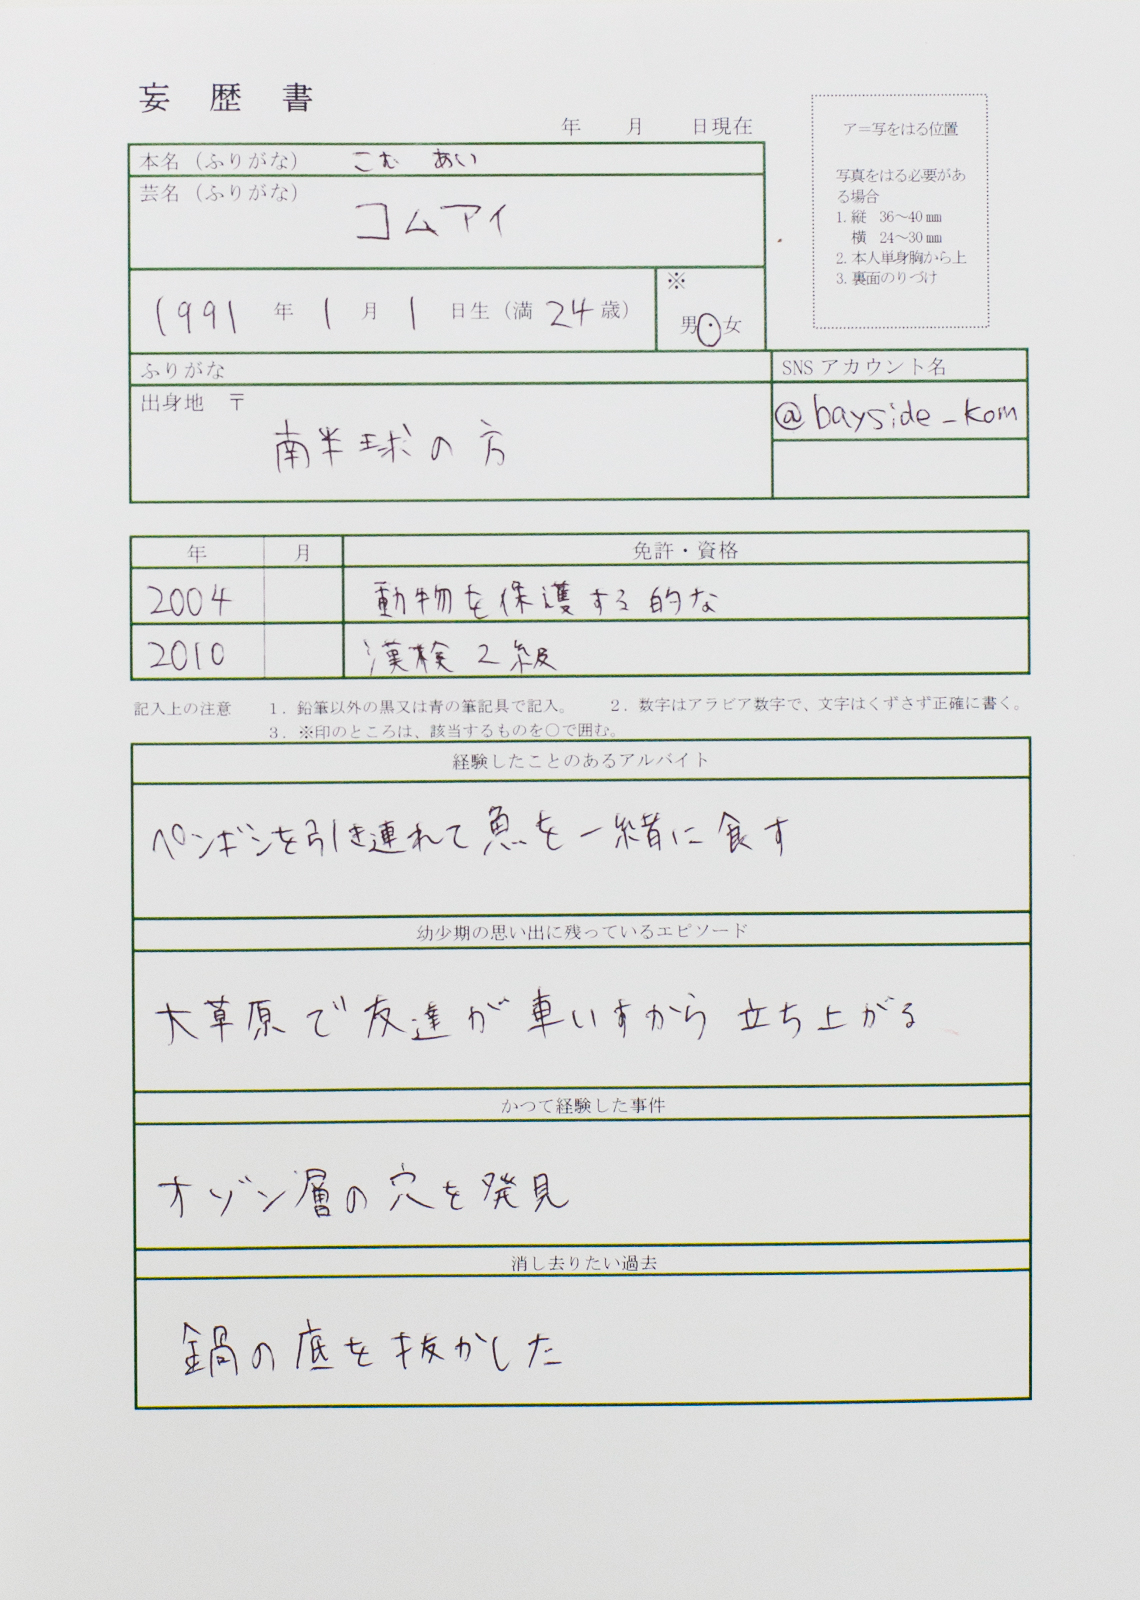 妄歴書
年 月 日現在
ア＝写をはる位置
写真をはる必要があ
る場合
1. 縦 36～40㎜
横 24～30㎜
2. 本人単身胸から上
3. 裏面のりづけ
本名（ふりがな） こむ あい
芸名（ふりがな）
コムアイ
1991 年 1 月 1 日生（満 24 歳）
※
男・女
ふりがな
SNS アカウント名
出身地 〒
@bayside_kom
南半球の方
年 月 免許・資格
2004 動物を保護する的な
2010 漢検2級
記入上の注意 1. 鉛筆以外の黒又は青の筆記具で記入。 2. 数字はアラビア数字で、文字はくずさず正確に書く。
3. ※印のところは、該当するものを○で囲む。
経験したことのあるアルバイト
ペンギンを引き連れて魚を一緒に食す
幼少期の思い出に残っているエピソード
大草原で友達が車いすから立ち上がる
かつて経験した事件
オゾン層の穴を発見
消し去りたい過去
鍋の底を抜かした